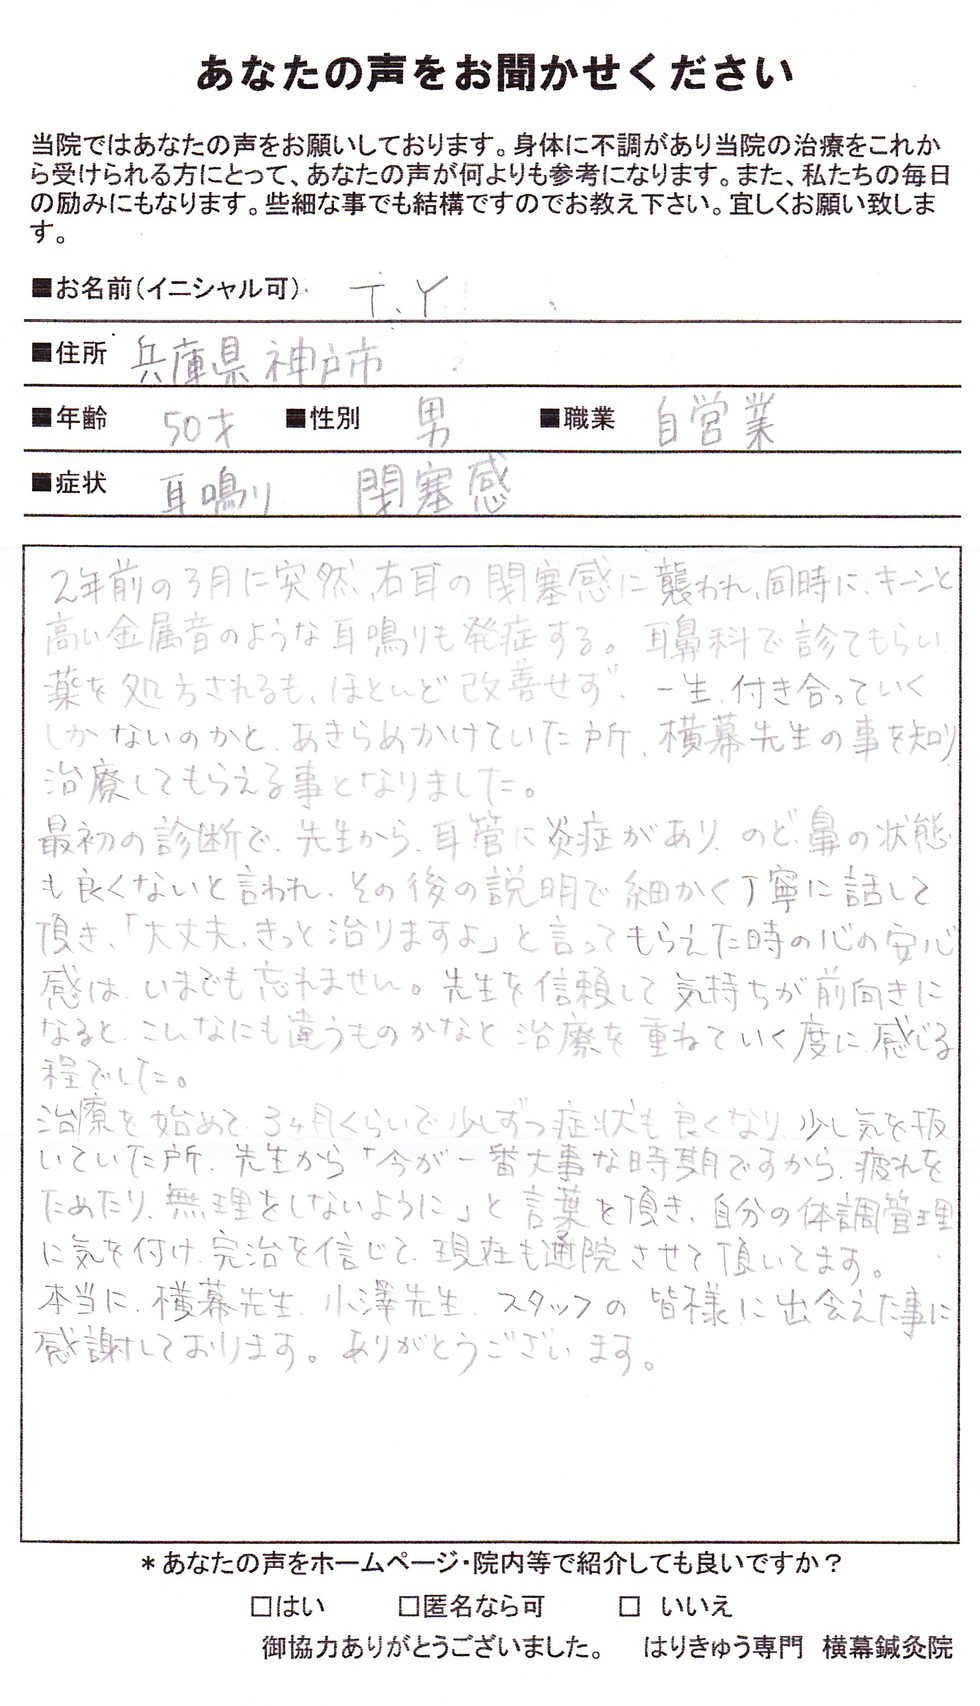 あなたの声をお聞かせください
当院ではあなたの声をお願いしております。身体に不調があり当院の治療をこれか
ら受けられる方にとって、あなたの声が何よりも参考になります。また、私たちの毎日
の励みにもなります。些細な事でも結構ですのでお教え下さい。宜しくお願い致しま
す。
■お名前(イニシャル可) T.Y
■住所 兵庫県神戸市
■年齢 50才 ■性別 男 ■職業 自営業
■症状 耳鳴り 閉塞感
2年前の3月に突然、右耳の閉塞感に襲われ、同時に、キーンと
高い金属音のような耳鳴りも発症する。耳鼻科で診てもらい
薬を処方されるも、ほとんど改善せず、一生、付き合っていく
しかないのかと、あきらめかけていた所、横幕先生の事を知り
治療してもらえる事となりました。
最初の診断で、先生から、耳管に炎症があり、のど、鼻の状態
も良くないと言われ、その後の説明で細かく丁寧に話して
頂き、「大丈夫、きっと治りますよ」と言ってもらえた時の心の安心
感は、いまでも忘れません。先生を信頼して気持ちが前向きに
なると、こんなにも違うものかなと治療を重ねていく度に、感じる
程でした。
治療を始めて、3ヶ月くらいで少しずつ症状も良くなり、少し気を抜
いていた所、先生から「今が一番大事な時期ですから、疲れを
ためたり、無理をしないように」と言葉を頂き、自分の体調管理
に気を付け、完治を信じて、現在も通院させて頂いてます。
本当に、横幕先生、小澤先生、スタッフの皆様に出会えた事に
感謝しております。ありがとうございます。
*あなたの声をホームページ・院内等で紹介しても良いですか?
□はい □匿名なら可 □ いいえ
御協力ありがとうございました。 はりきゅう専門 横幕鍼灸院